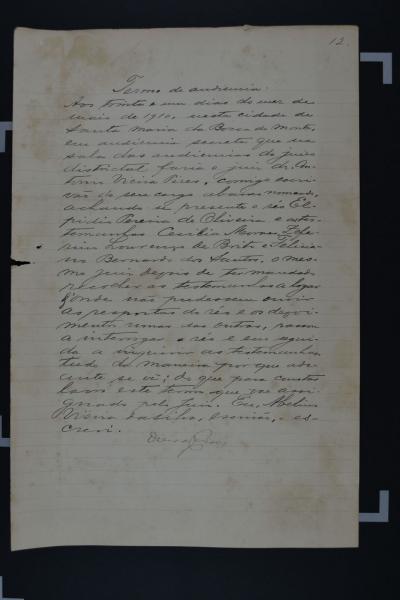 12.
Termo de audiencia:
Aos trinta e um dias do mez de
maio de 1910, nesta cidade de
Santa Maria da Bocca do Monte,
em audiencia secreta que na
sala das audiencias do juizo
districtal fazia o juiz dr. An-
tonio Vieira Pires, comigo escri-
vão de seu cargo abaixo nomeado,
achando se presente o réo El-
pidio Pereira de Oliveira e as tes-
temunhas Cecilia Moraes, Zefe-
rino Lourenço de Brito e Felicia-
no Bernardo dos Santos, o mes-
mo juiz depois de ter mandado
recolher as testemunhas a logar
d'onde não pudessem ouvir
as respostas do réo e os depoi-
mentos umas das outras, passou
a interrogar o réo e em segui-
da a inquirir as testemunhas,
tudo da maneira por que adi-
ante se vê; do que para constar
lavro este termo que vai assi-
gnado pelo juiz. Eu,
Vieira escrivão, o es-
crevi.